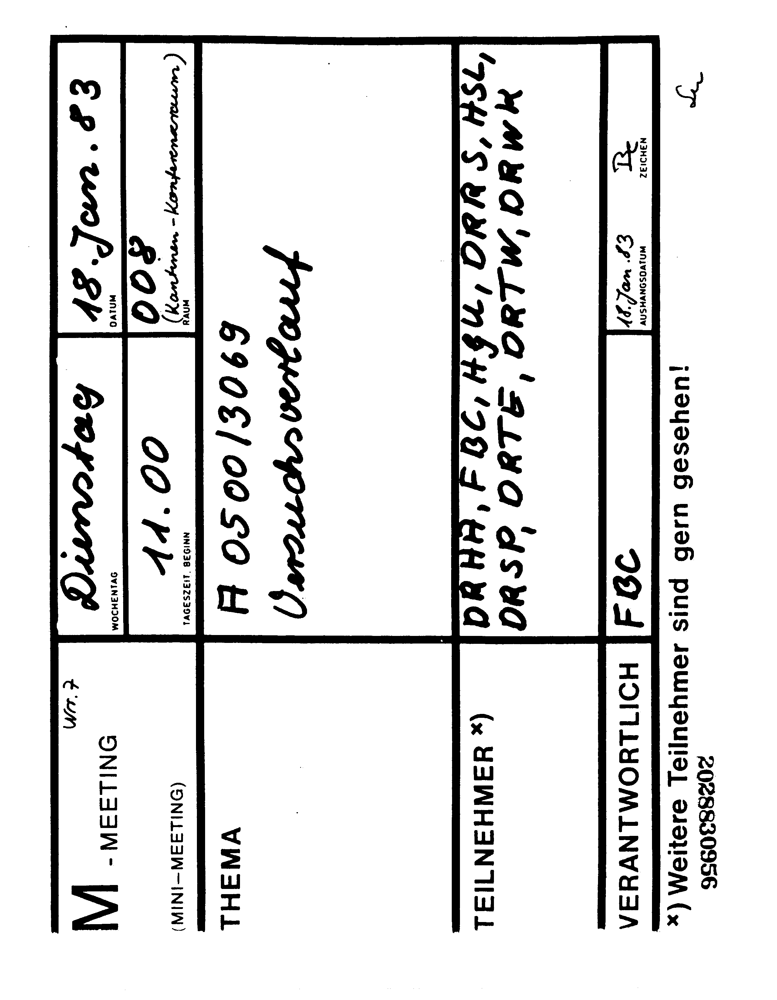 M - MEETING
Nr. 7
(MINI-MEETING)
Dienstag
WOCHENTAG
18. Jan. 83
DATUM
11.00
TAGESZEIT, BEGINN
008
(Kantinen-Konferenzraum)
RAUM
THEMA
A 0500/3069
Versuchsverlauf
TEILNEHMER *)
DRHA, FBC, HGU, DRRS, HSL,
DRSP, DRTE, DRTW, DRWK
VERANTWORTLICH
FBC
18. Jan. 83
AUSHANGSDATUM
ZEICHEN
*) Weitere Teilnehmer sind gern gesehen!
2028830956